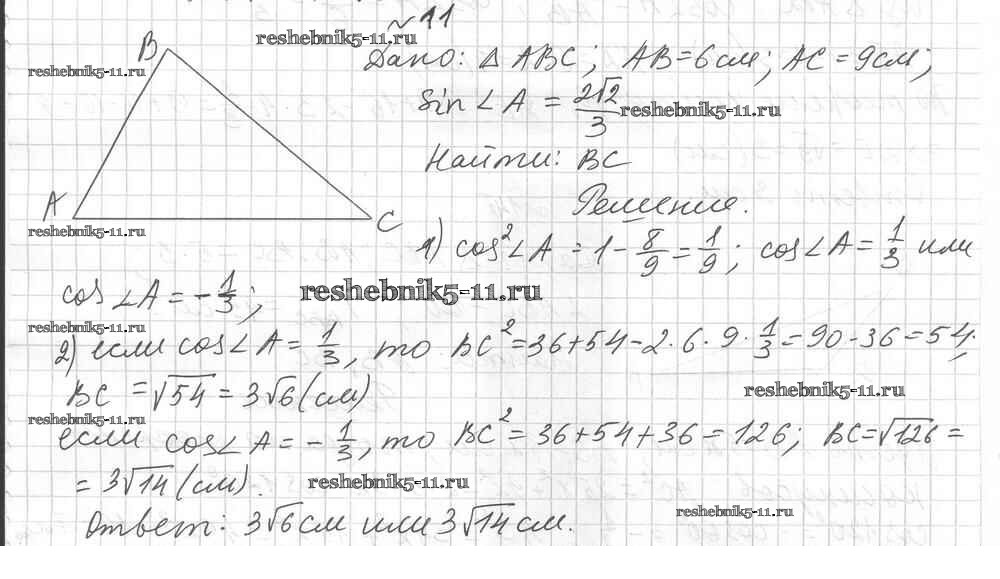 № 11
reshebnik5-11.ru
B
reshebnik5-11.ru
Дано: △ ABC; AB = 6 см; AC = 9 см;
sin ∠ A = 2√2/3
reshebnik5-11.ru
Найти: BC
Решение.
A
C
reshebnik5-11.ru
1) cos² ∠ A = 1 - 8/9 = 1/9; cos ∠ A = 1/3 или
cos ∠ A = - 1/3;
reshebnik5-11.ru
reshebnik5-11.ru
2) если cos ∠ A = 1/3, то BC² = 36 + 54 - 2 · 6 · 9 · 1/3 = 90 - 36 = 54;
BC = √54 = 3√6 (см)
reshebnik5-11.ru
reshebnik5-11.ru
если cos ∠ A = - 1/3, то BC² = 36 + 54 + 36 = 126; BC = √126 =
= 3√14 (см).
reshebnik5-11.ru
Ответ: 3√6 см или 3√14 см.
reshebnik5-11.ru